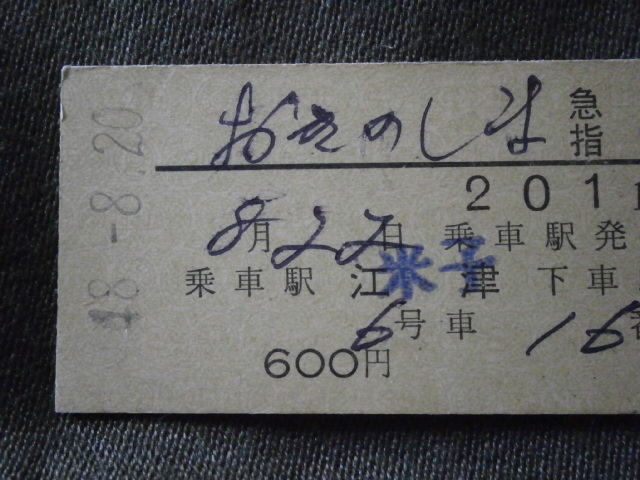 おきのしま 急指
201
8月22日 乗車駅発
乗車駅 江津 下車
米子
6号車 16番
600円
48.-8.20